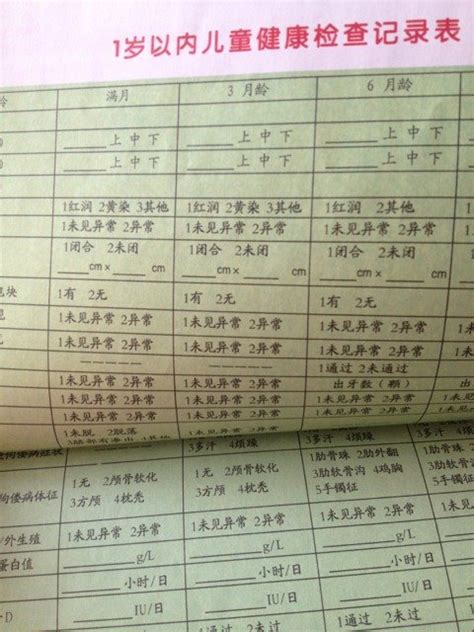 1岁以内儿童健康检查记录表
龄 满月 3 月龄 6 月龄
上 中 下 上 中 下 上 中 下
上 中 下 上 中 下 上 中 下
1红润 2黄染 3其他 1红润 2黄染 3其他 1红润 2黄染 3其他
1未见异常 2异常 1未见异常 2异常 1未见异常 2异常
1闭合 2未闭 1闭合 2未闭 1闭合 2未闭
cm× cm cm× cm cm× cm
包块 1有 2无 1有 2无 1有 2无
1未见异常 2异常 1未见异常 2异常 1未见异常 2异常
1未见异常 2异常 1未见异常 2异常 1未见异常 2异常
————— ————— 1通过 2未通过
1未见异常 2异常 1未见异常 2异常 出牙数(颗)
1未见异常 2异常 1未见异常 2异常 1未见异常 2异常
1未脱 2脱落 1未见异常 2异常 1未见异常 2异常
佝偻病症状 3多汗 4烦躁 3多汗 4烦躁
佝偻病体征 1无 2颅骨软化 1无 2颅骨软化 1肋骨珠 2肋外翻
3方颅 4枕秃 3方颅 4枕秃 3肋软骨沟 4鸡胸
5手镯征
/外生殖 1未见异常 2异常 1未见异常 2异常 1未见异常 2异常
蛋白值 g/L g/L g/L
小时/日 小时/日 小时/日
D IU/日 IU/日 IU/日
1通过 2未过 1通过 2未过